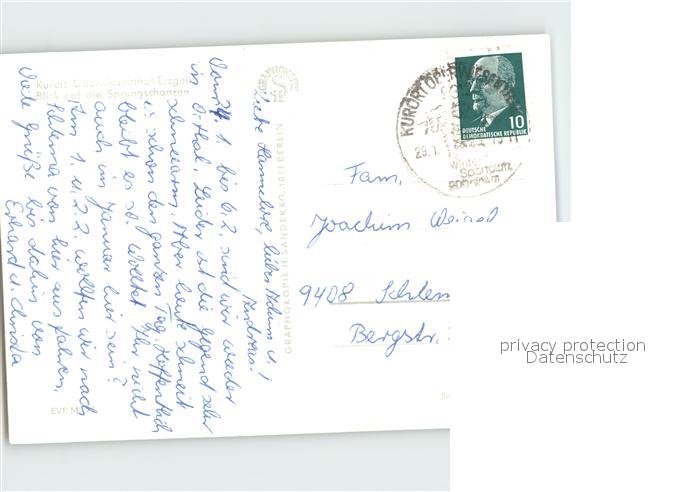 Kurort Oberwiesenthal Erzgeb
Blick auf die Sprungschanzen
Liebe Hannelore, lieber Achim u.
Andreas!
Vom 24. 1. bis 6. 2. sind wir wieder
in O.-thal. Leider ist die Gegend sehr
schneearm. Aber heute schneit
es schon den ganzen Tag. Hoffentlich
bleibt es so. Wolltet Ihr nicht
auch im Januar hier sein?
Am 1. u. 2. 2. wollten wir nach
von hier aus fahren.
Viele Grüße bis dahin von
Erhard u. Christa
EVP M
GRAPHOKOPIE H. SANDER KG. 1071 BERLIN
GRAPHOKOPIE
KURORT OBERWIESENTHAL
29.1.
Winter
Sportplatz
DEUTSCHE
DEMOKRATISCHE REPUBLIK
10
Fam.
Joachim
9408 Schlem
Bergstr.
privacy protection
Datenschutz